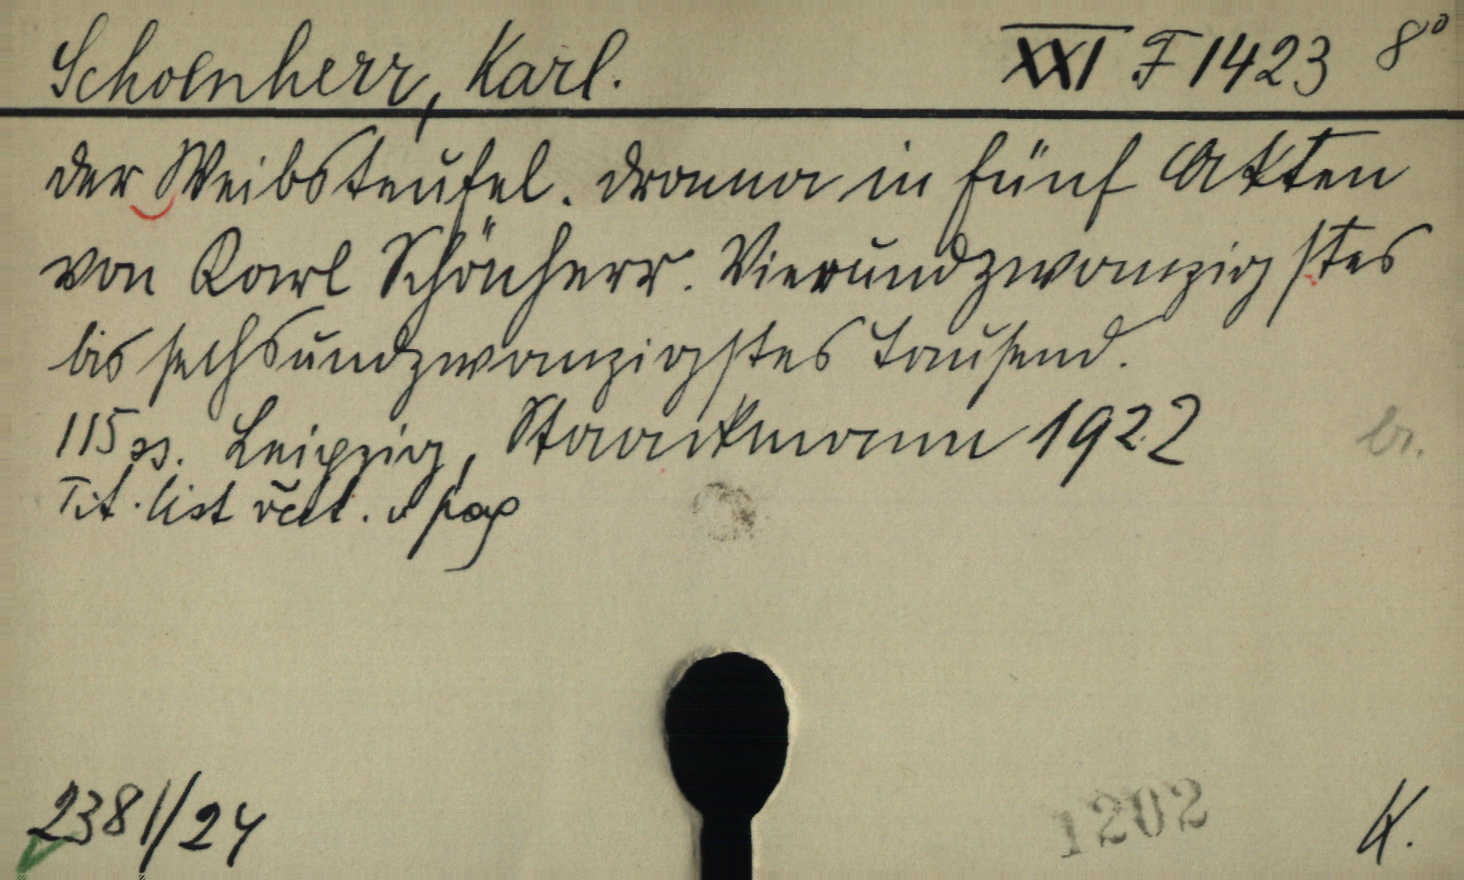 Schoenherr, Karl. XXI F 1423 8°
Der Weibsteufel. Drama in fünf Akten
von Karl Schönherr. Vierundzwanzigstes
bis sechsundzwanzigstes Tausend.
115 ss. Leipzig, Staackmann 1922 br.
Tit. list
2381/24 1202 K.